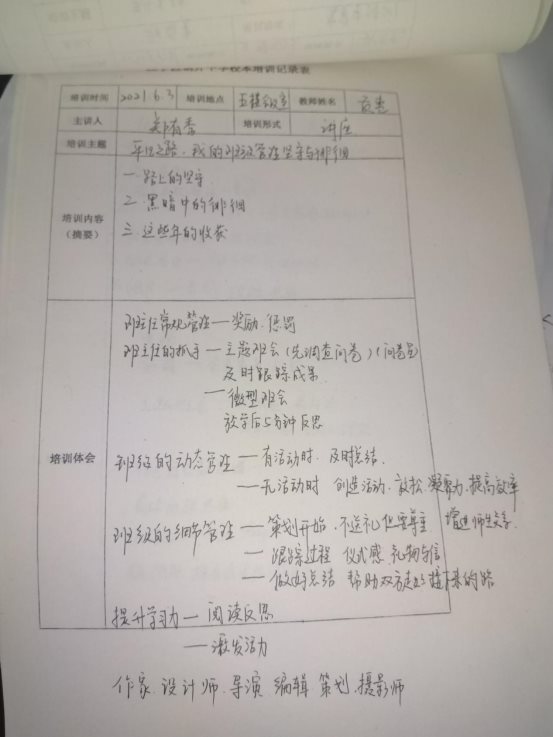 校本培训记录表
培训时间 2021.6.3 培训地点 五楼会议室 教师姓名
主讲人 培训形式 讲座
培训主题 平凡之路,我的班级管理坚守与徘徊
培训内容（摘要） 一.路上的坚守
二.黑暗中的徘徊
三.这些年的收获
培训体会 班主任常规管理—奖励.惩罚
班主任的抓手—主题班会(先调查问卷)(问卷星)
及时跟踪成果
—微型班会
放学后5分钟反思
班级的动态管理—有活动时.及时总结.
—无活动时 创造活动.放松.凝聚力.提高效率
增进师生交流.
班级的细节管理—策划开始.不送礼但要尊重
—跟踪过程 仪式感.礼物与信
—做好总结 帮助双方走好接下来的路
提升学习力—阅读反思
—激发活力
作家.设计师.导演.编辑.策划.摄影师